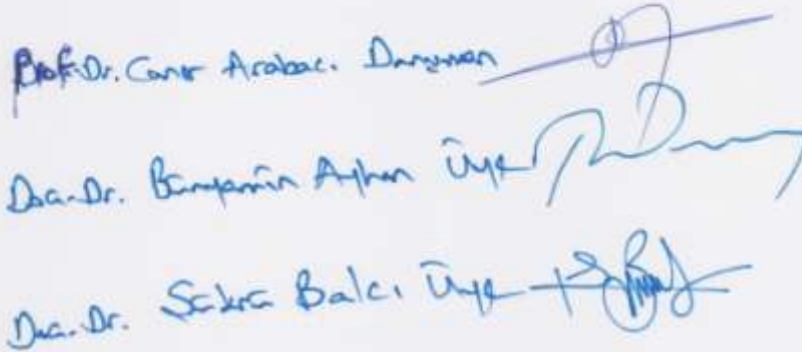 Prof. Dr. Caner Arabacı Danışman
Doç. Dr. Bünyamin Ayhan Üye
Doç. Dr. Şükrü Balcı Üye